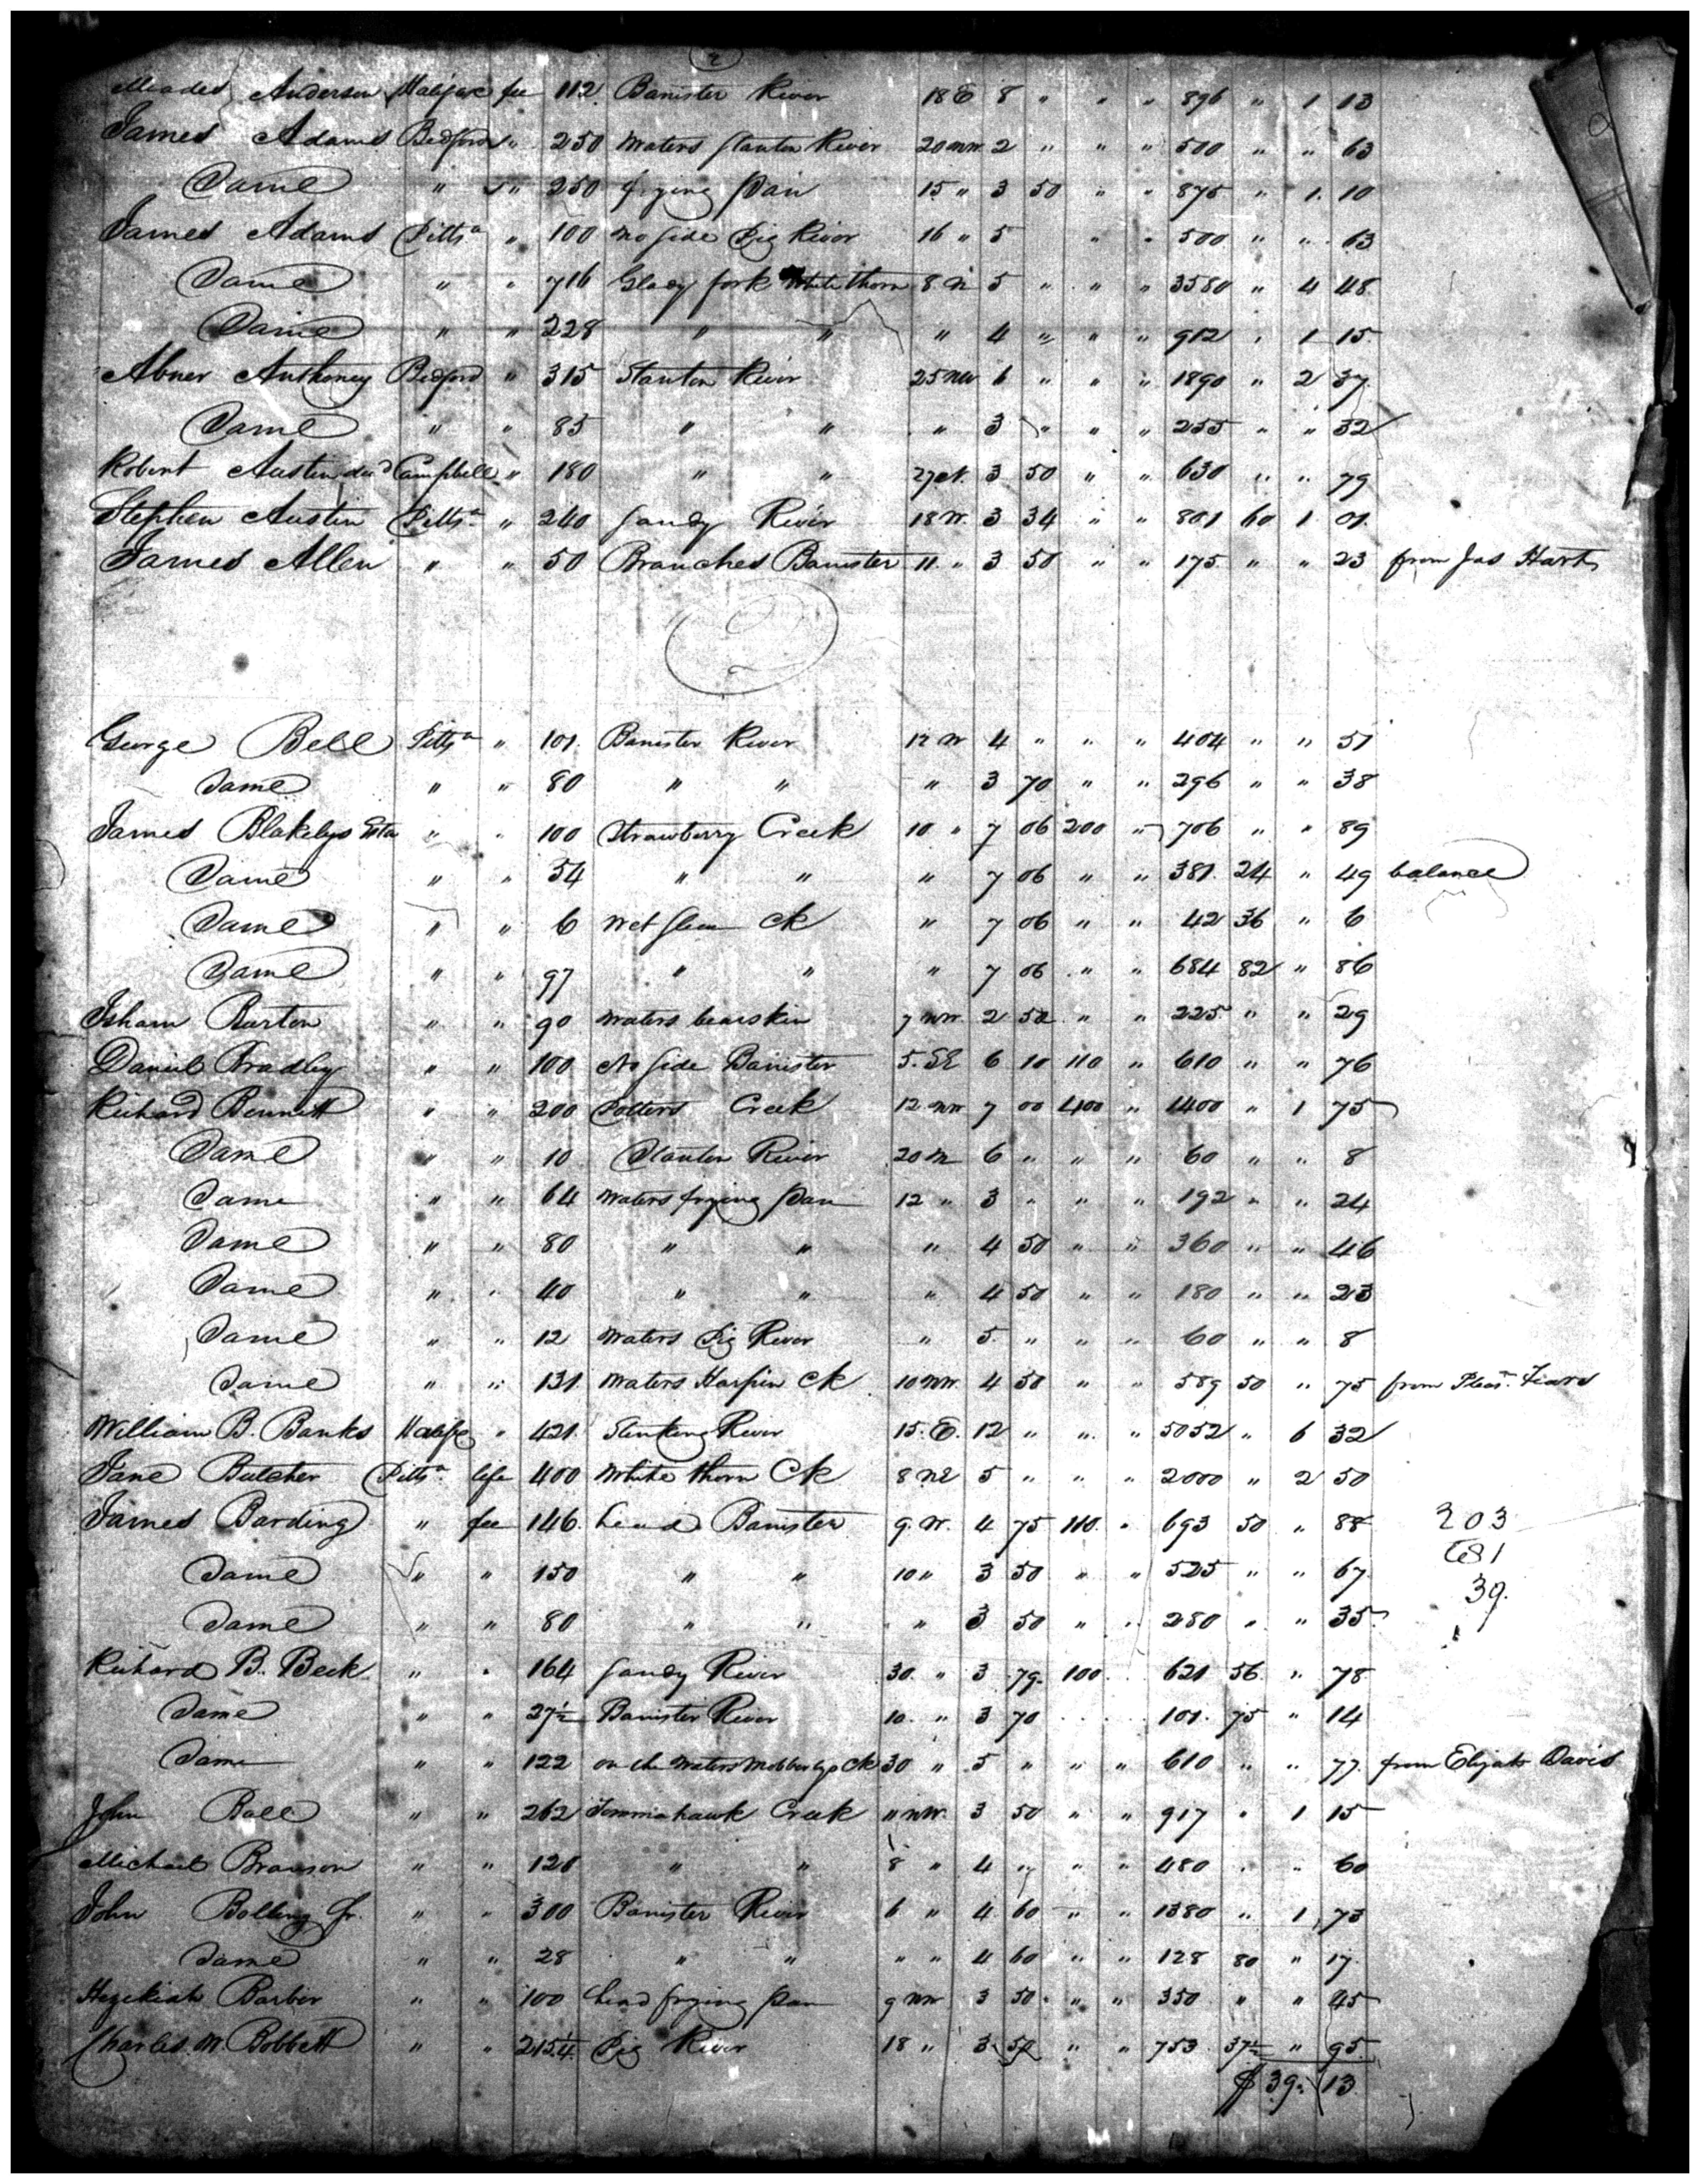 2
Meades Anderson Halifax fee 112 Banister River 18 E 8 " " " 896 " 1 13
James Adams Bedford " 250 Waters Stanton River 20 NW 2 " " " 500 " " 63
Same " " 250 frying Pan 15 " 3 50 " " 875 " 1 10
James Adams Pittsa " 100 No side Pig River 16 " 5 " " 500 " " 63
Same " " 716 Glady fork White thorn 8 N 5 " " " 3580 " 4 48
Same " " 228 " " " 4 " " " 912 " 1 15
Abner Anthoney Bedford " 315 Stanton River 25 NW 6 " " " 1890 " 2 37
Same " " 85 " " " 3 " " " 255 " " 32
Robert Austin decd Campbell " 180 " " 27 N. 3 50 " " 630 " " 79
Stephen Austin Pittsa " 240 Sandy River 18 W. 3 34 " " 801 60 1 01
James Allen " " 50 Branches Banister 11 " 3 50 " " 175 " " 23 from Jas Hart
2
George Bell Pittsa " 101 Banister River 12 W 4 " " " 404 " " 51
Same " " 80 " " " 3 70 " " 296 " " 38
James Blakelys Esta " " 100 Strawberry Creek 10 " 7 06 200 " 706 " " 89
Same " " 54 " " " 7 06 " " 381 24 " 49 balance
Same " " 6 Wet sleeve Ck " 7 06 " " 42 36 " 6
Same " " 97 " " " 7 06 " " 684 82 " 86
Isham Barton " " 90 Waters bearskin 7 NW. 2 50 " " 225 " " 29
Daniel Bradley " " 100 No side Banister 5. SE 6 10 110 " 610 " " 76
Richard Bennett " " 200 Potters Creek 12 NW 7 00 400 " 1400 " 1 75
Same " " 10 Stanton River 20 N 6 " " " 60 " " 8
Same " " 64 Waters frying Pan 12 " 3 " " " 192 " " 24
Same " " 80 " " " 4 50 " " 360 " " 46
Same " " 40 " " " 4 50 " " 180 " " 23
Same " " 12 Waters Pig River " 5 " " " 60 " " 8
Same " " 131 Waters Harpin Ck 10 NW. 4 50 " " 589 50 " 75 from Pleast.
William B. Banks Halifx " 421 Stinking River 15. E. 12 " " " 5052 " 6 32
Jane Butcher Pittsa life 400 White thorn Ck 8 NE 5 " " " 2000 " 2 50
James Barding " fee 146 head Banister 9. W. 4 75 110 " 693 50 " 88 203
Same " " 150 " " 10 " 3 50 " " 525 " " 67 81
Same " " 80 " " " 3 50 " " 280 " " 35 39.
Richard B. Beck " " 164 Sandy River 30 " 3 79 100 621 56 " 78
Same " " 27½ Banister River 10 " 3 70 101 75 " 14
Same " " 122 on the Waters Mobberlys Ck 30 " 5 " " " 610 " " 77 from Elijah Davis
John Ball " " 262 Tommahawk Creek 11 NW. 3 50 " " 917 " 1 15
Michael Branson " " 120 " " 8 " 4 " " " 480 " " 60
John Bolling Jr. " " 300 Banister River 6 " 4 60 " " 1380 " 1 73
Same " " 28 " " " " 4 60 " " 128 80 " 17
Hezekiah Barber " " 100 head frying Pan 9 NW 3 50 " " 350 " " 45
Charles M. Bobbett " " 215¼ Pig River 18 " 3 50 " " 753 37½ " 95
$ 39. 13